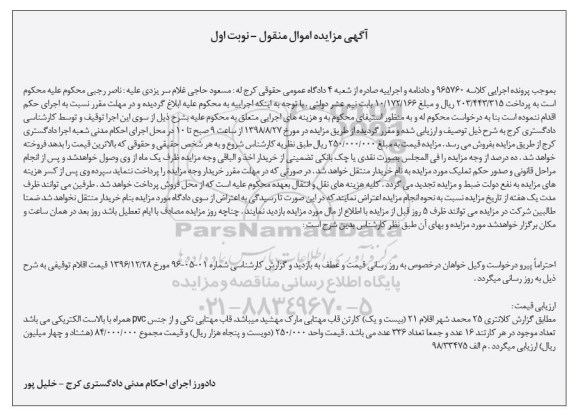 آگهی مزایده اموال منقول – نوبت اول
بموجب پرونده اجرایی کلاسه ۹۶۵۷۶۰ و دادنامه و اجراییه صادره از شعبه ۴ دادگاه عمومی حقوقی کرج له : مسعود حاجی غلام سر یزدی علیه : ناصر رجبی محکوم علیه محکوم
است به پرداخت ۲۰۲/۴۴۳/۳۱۵ ریال و مبلغ ۱۰/۱۷۲/۱۶۶ بابت نیم عشر دولتی . با توجه به اینکه اجراییه به محکوم علیه ابلاغ گردیده و در مهلت مقرر نسبت به اجرای حکم
اقدام ننموده است بنا به درخواست محکوم له و به منظور استیفای محکوم به و هزینه های اجرایی متعلق به محکوم علیه بشرح ذیل از سوی این اجرا توقیف و توسط کارشناسی
دادگستری کرج به شرح ذیل توصیف و ارزیابی شده و مقرر گردیده از طریق مزایده در مورخ ۱۳۹۸/۸/۲۷ از ساعت ۹ صبح تا ۱۰ در محل اجرای احکام مدنی شعبه اجرا دادگستری
کرج از طریق مزایده بفروش می رسد . مزایده قیمت به مبلغ ۲۵۰/۰۰۰/۰۰۰ ریال طبق نظریه کارشناس شروع و به هر شخص حقیقی و حقوقی که بالاترین قیمت را بدهد فروخته
خواهد شد . ده درصد از وجه مزایده را فی المجلس بصورت نقدی یا چک بانکی تضمینی از خریدار اخذ و الباقی وجه مزایده ظرف یک ماه از وی وصول خواهدشد و پس از انجام
مراحل قانونی و صدور حکم تملیک مورد مزایده به نام خریدار منتقل خواهد شد . در صورتی که در مهلت مقرر خریدار وجه مزایده را پرداخت ننماید سپرده وی پس از کسر هزینه
های مزایده به نفع دولت ضبط و مزایده تجدید می گردد . کلیه هزینه های نقل و انتقال بعهده محکوم علیه است که از محل فروش پرداخت خواهد شد . طرفین می توانند ظرف
مدت یک هفته از تاریخ مزایده نسبت به نحوه انجام مزایده اعتراض نمایند که در این صورت تا رسیدگی به اعتراض از سوی دادگاه مورد مزایده بنام خریدار منتقل نخواهد شد ضمنا
طالبین شرکت در مزایده می توانند ظرف ۵ روز قبل از مزایده با اطلاع از مال مورد مزایده بازدید نمایند . چناچه روز مزایده مصادف با ایام تعطیل باشد روز بعد در همان ساعت و
مکان برگزار خواهدشد مورد مزایده و بهای آن طبق نظر کارشناس بدین شرح است :
احتراماً پیرو درخواست وکیل خواهان درخصوص به روز رسانی قیمت و عطف به بازدید و گزارش کارشناسی شماره ۰۱-۰۵-۹۶ مورخ ۱۳۹۶/۱۲/۲۸ قیمت اقلام توقیفی به شرح
ذیل به روز رسانی میگردد .
ارزیابی قیمت :
مطابق گزارش کلانتری ۲۵ محمد شهر اقلام ۲۱ (بیست و یک) کارتن قاب مهتابی مارک مهشید میباشد، قاب مهتابی تکی و از جنس pvc همراه با بالاست الکتریکی می باشد
تعداد موجود در هر کارتند ۱۶ عدد و جمعا تعداد ۳۳۶ عدد می باشد . قیمت واحد ۲۵۰/۰۰۰ (دویست و پنجاه هزار ریال) و قیمت مجموع ۸۴/۰۰۰/۰۰۰ (هشتاد و چهار میلیون
ریال) ارزیابی میگردد . م الف ۹۸/۳۳۴۷۵
دادورز اجرای احکام مدنی دادگستری کرج – خلیل پور
ParsNamadData
پایگاه اطلاع رسانی مناقصه و مزایده
۰۲۱-۸۸۳۴۹۶۷۰-۵